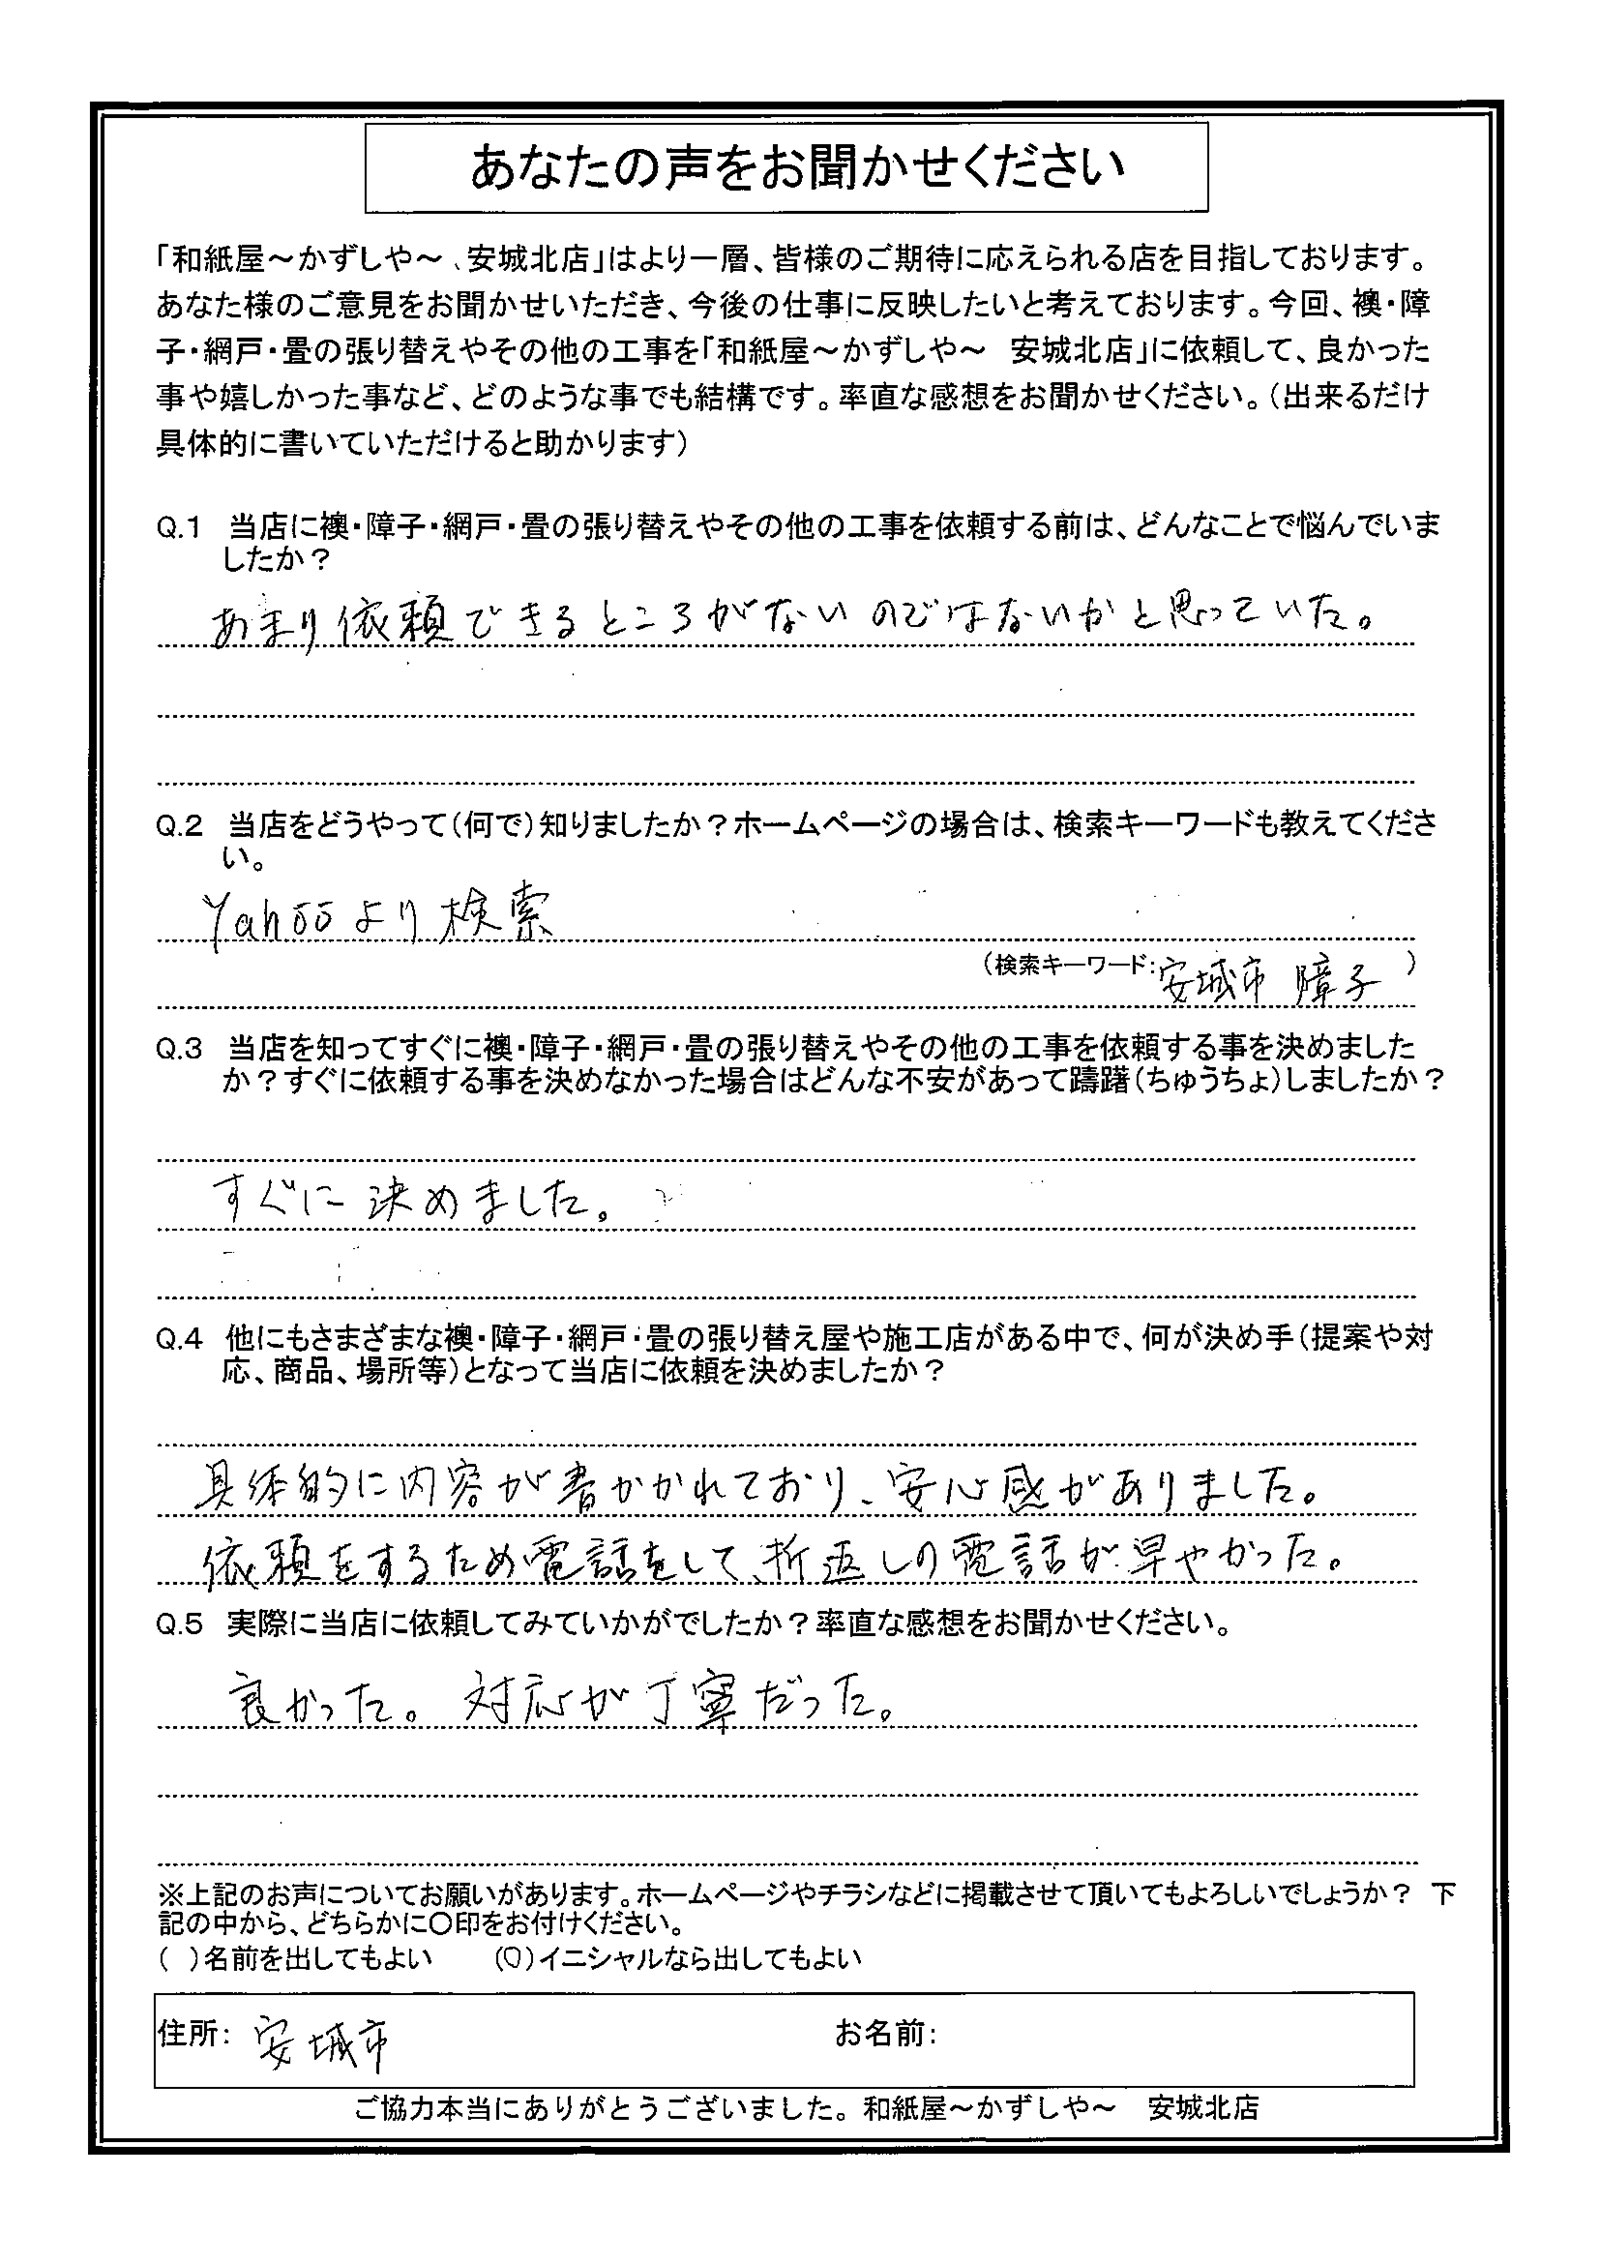 あなたの声をお聞かせください
「和紙屋～かずしや～、安城北店」はより一層、皆様のご期待に応えられる店を目指しております。
あなた様のご意見をお聞かせいただき、今後の仕事に反映したいと考えております。今回、襖・障
子・網戸・畳の張り替えやその他の工事を「和紙屋～かずしや～　安城北店」に依頼して、良かった
事や嬉しかった事など、どのような事でも結構です。率直な感想をお聞かせください。（出来るだけ
具体的に書いていただけると助かります）
Q.1　当店に襖・障子・網戸・畳の張り替えやその他の工事を依頼する前は、どんなことで悩んでいま
したか？
あまり依頼できるところがないのではないかと思っていた。
Q.2　当店をどうやって（何で）知りましたか？ホームページの場合は、検索キーワードも教えてくださ
い。
Yahooより検索
（検索キーワード：安城市 障子　）
Q.3　当店を知ってすぐに襖・障子・網戸・畳の張り替えやその他の工事を依頼する事を決めました
か？すぐに依頼する事を決めなかった場合はどんな不安があって躊躇（ちゅうちょ）しましたか？
すぐに決めました。
Q.4　他にもさまざまな襖・障子・網戸・畳の張り替え屋や施工店がある中で、何が決め手（提案や対
応、商品、場所等）となって当店に依頼を決めましたか？
具体的に内容が書かかれており、安心感がありました。
依頼をするため電話をして、折返しの電話が早やかった。
Q.5　実際に当店に依頼してみていかがでしたか？率直な感想をお聞かせください。
良かった。対応が丁寧だった。
※上記のお声についてお願いがあります。ホームページやチラシなどに掲載させて頂いてもよろしいでしょうか？　下
記の中から、どちらかに〇印をお付けください。
（　）名前を出してもよい　　（〇）イニシャルなら出してもよい
住所：安城市　お名前：
ご協力本当にありがとうございました。和紙屋～かずしや～　安城北店